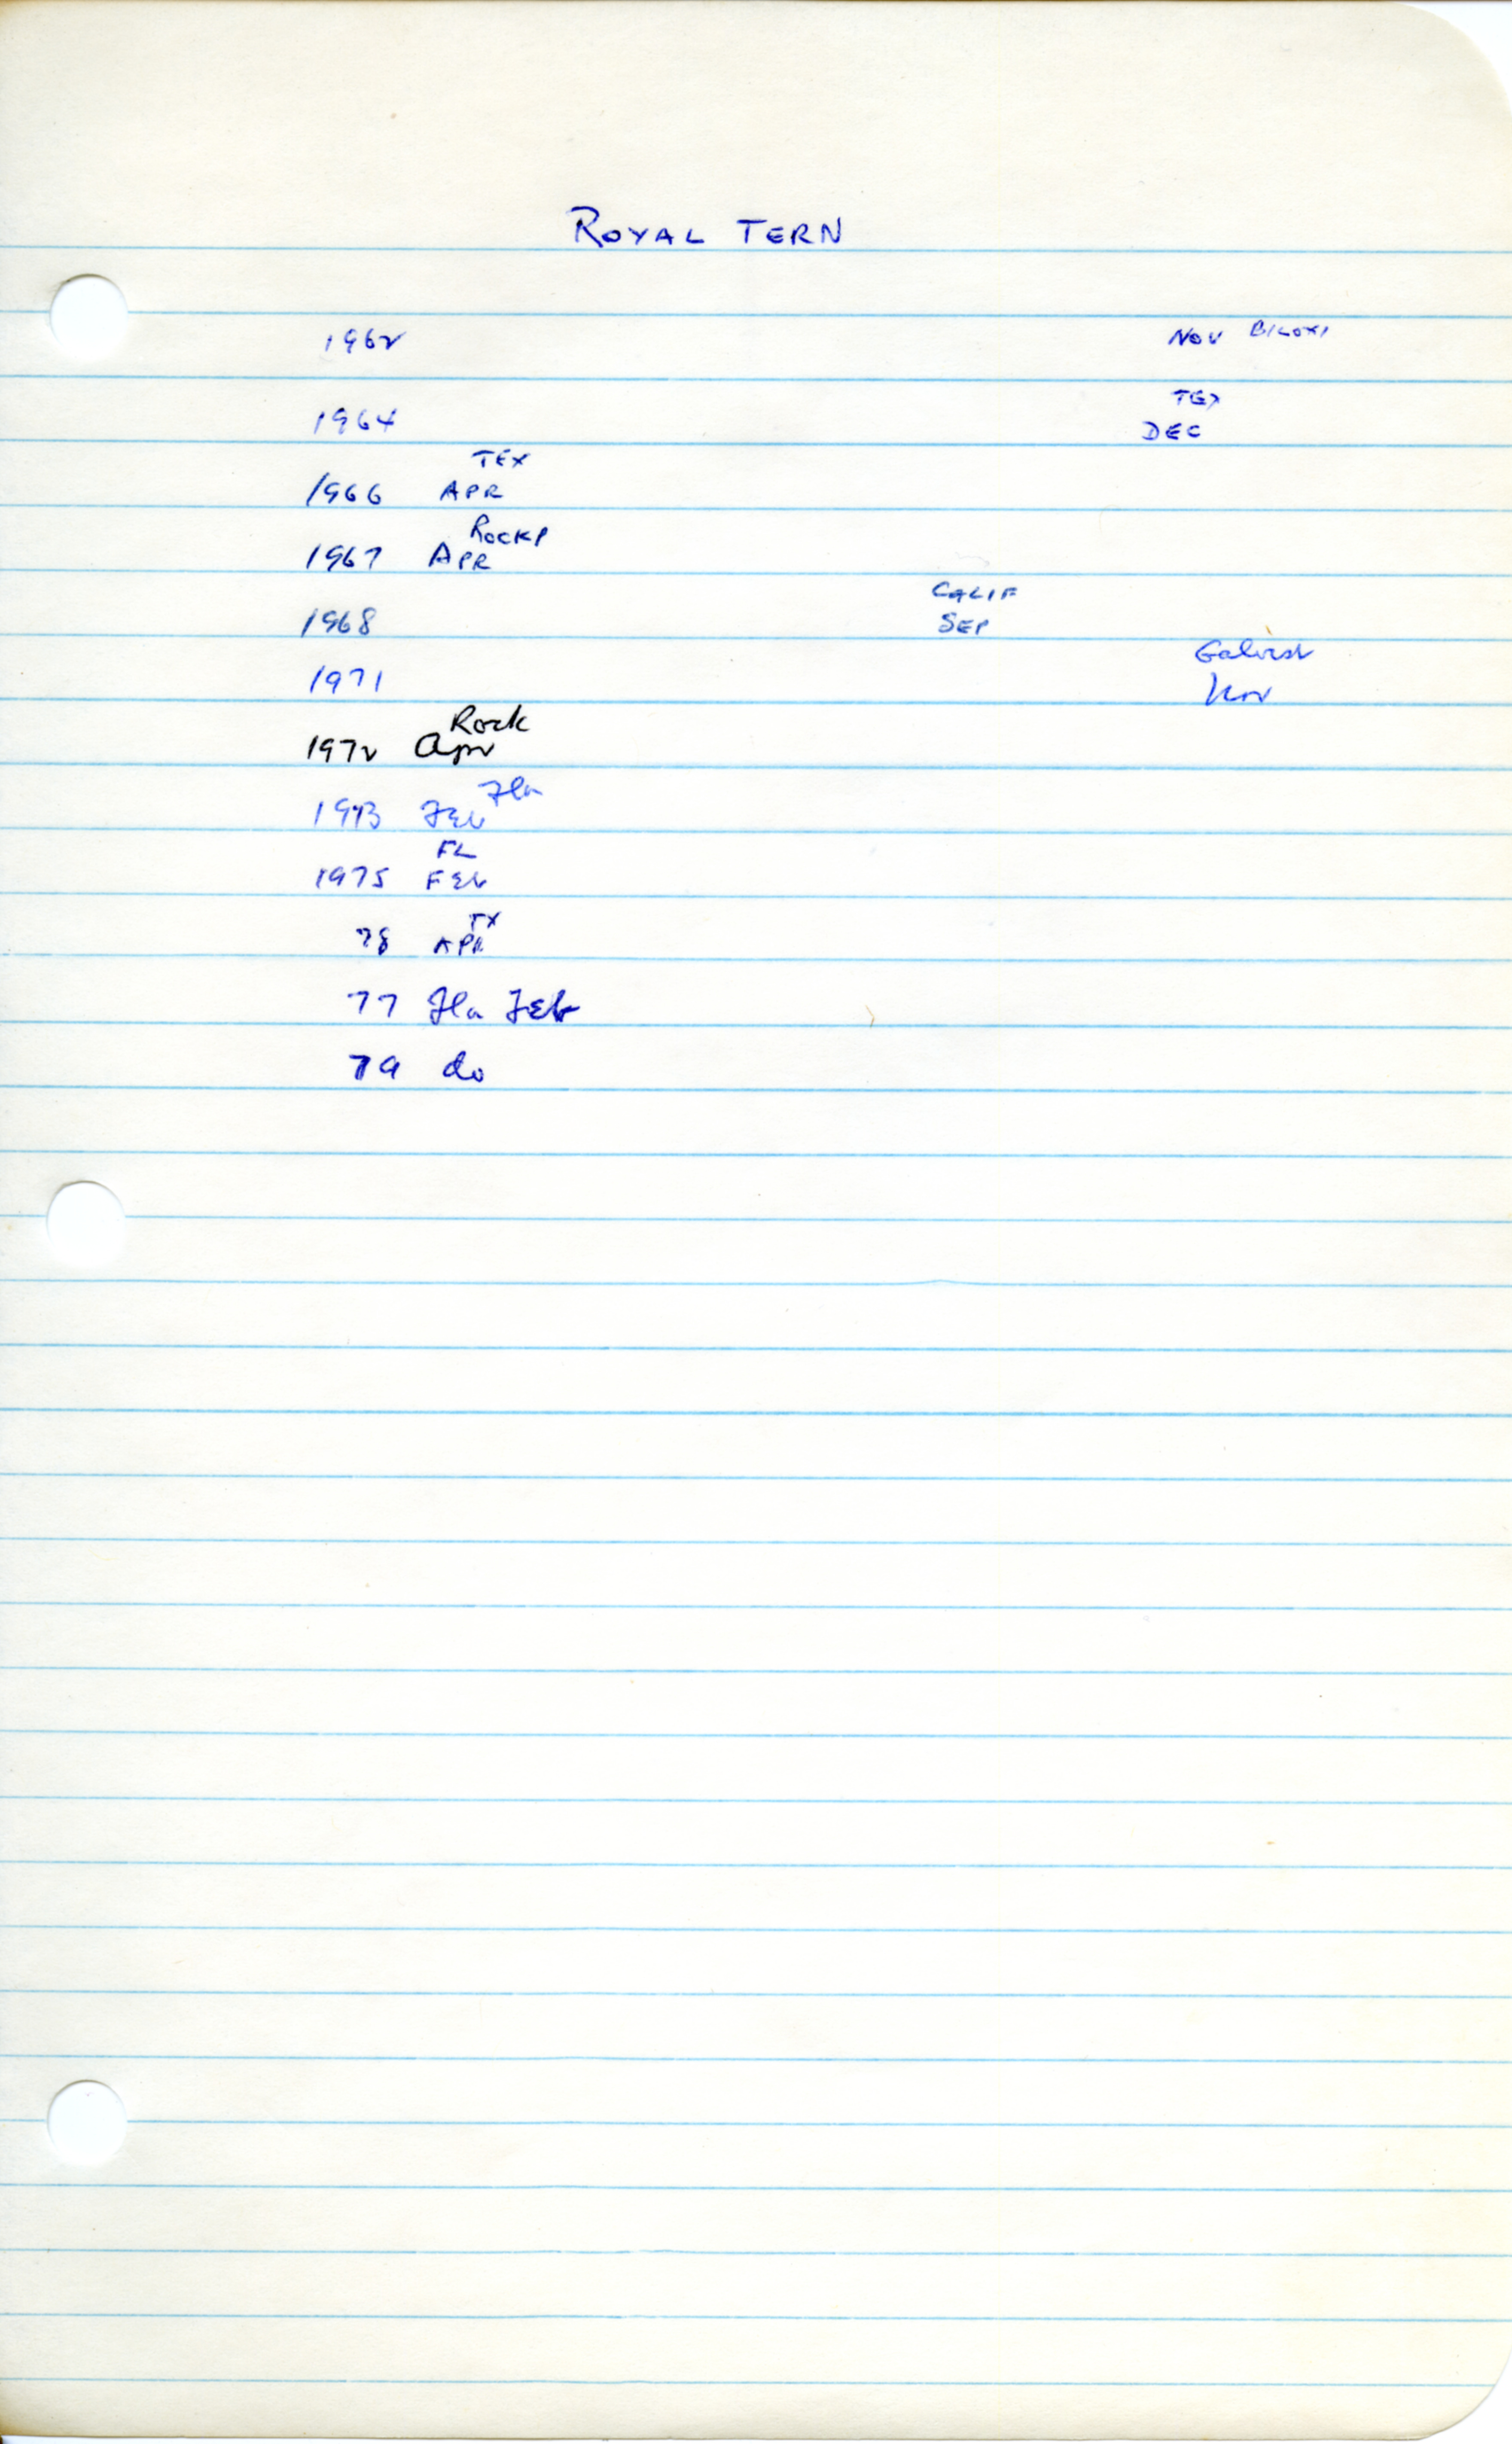 ROYAL TERN
1962 NOV BILOXI
TEX
1964 DEC
TEX
1966 APR
ROCKP
1967 APR
CALIF
1968 SEP
Galvest
1971 Nov
Rock
1972 Apr
Fla
1973 Feb
FL
1975 FEb
TX
78 APR
77 Fla Feb
79 do